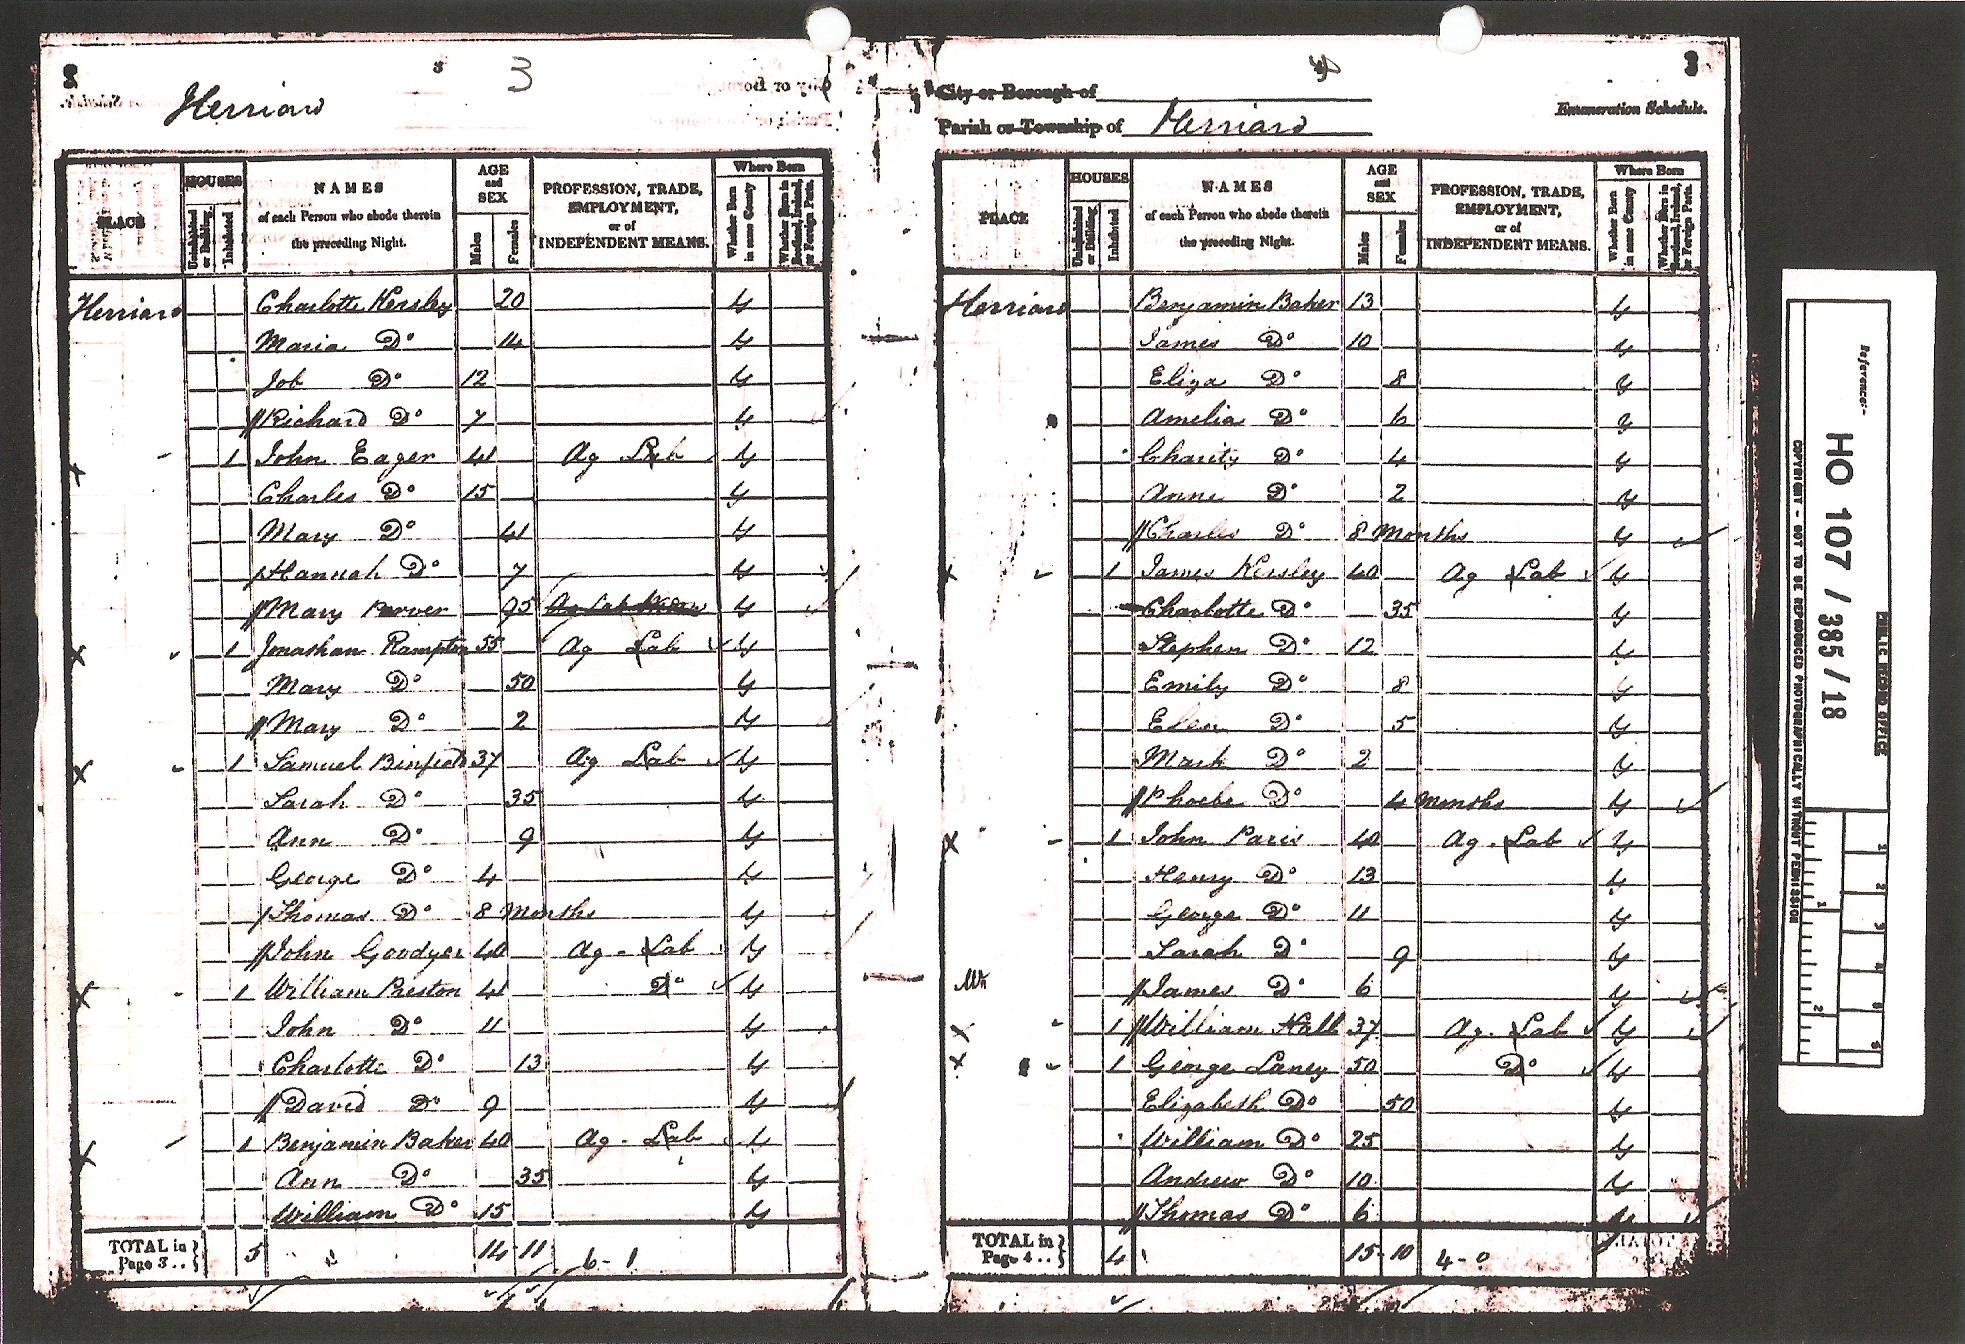 3
Herriard
NAMES
of each Person who abode therein
the preceding Night.
PLACE
HOUSES
Uninhabited or Building
Inhabited
AGE and SEX
Males
Females
PROFESSION, TRADE, EMPLOYMENT, or of INDEPENDENT MEANS.
Where Born
Whether Born in same County
Whether Born in Scotland, Ireland, or Foreign Parts.
Herriard Charlotte Kersley 20 y
Maria Do 14 y
Job Do 12 y
Richard Do 7 y
1 John Eager 41 Ag Lab y
Charles Do 15 y
Mary Do 41 y
Hannah Do 7 y
Mary 75 y
1 Jonathan Rampton 55 Ag Lab y
Mary Do 50 y
Mary Do 2 y
1 Samuel Binfield 37 Ag Lab y
Sarah Do 35 y
Ann Do 9 y
George Do 4 y
Thomas Do 8 Months y
John Goodyer 40 Ag - Lab y
1 William Preston 41 Do y
John Do 11 y
Charlotte Do 13 y
David Do 9 y
1 Benjamin Baker 40 Ag - Lab y
Ann Do 35 y
William Do 15 y
TOTAL in Page 3.. 5 14-11 6-1
4
3
City or Borough of
Parish or Township of Herriard
Enumeration Schedule.
PLACE
HOUSES
Uninhabited or Building
Inhabited
NAMES
of each Person who abode therein
the preceding Night.
AGE and SEX
Males
Females
PROFESSION, TRADE, EMPLOYMENT, or of INDEPENDENT MEANS.
Where Born
Whether Born in same County
Whether Born in Scotland, Ireland, or Foreign Parts.
Herriard Benjamin Baker 13 y
James Do 10 y
Eliza Do 8 y
Amelia Do 6 y
Charity Do 4 y
Anne Do 2 y
Charles Do 8 Months y
1 James Kersley 40 Ag Lab y
Charlotte Do 35 y
Stephen Do 12 y
Emily Do 8 y
Elen Do 5 y
Mark Do 2 y
Phoebe Do 4 Months y
1 John Paris 40 Ag. Lab y
Henry Do 13 y
George Do 11 y
Sarah Do 9 y
James Do 6 y
1 William Hall 37 Ag. Lab y
1 George Laney 50 Do y
Elizabeth Do 50 y
William Do 25 y
Andrew Do 10 y
Thomas Do 6 y
TOTAL in Page 4.. 4 15-10 4-0
Reference:-
HO 107 / 385 / 18
PUBLIC RECORD OFFICE
COPYRIGHT - NOT TO BE REPRODUCED PHOTOGRAPHICALLY WITHOUT PERMISSION